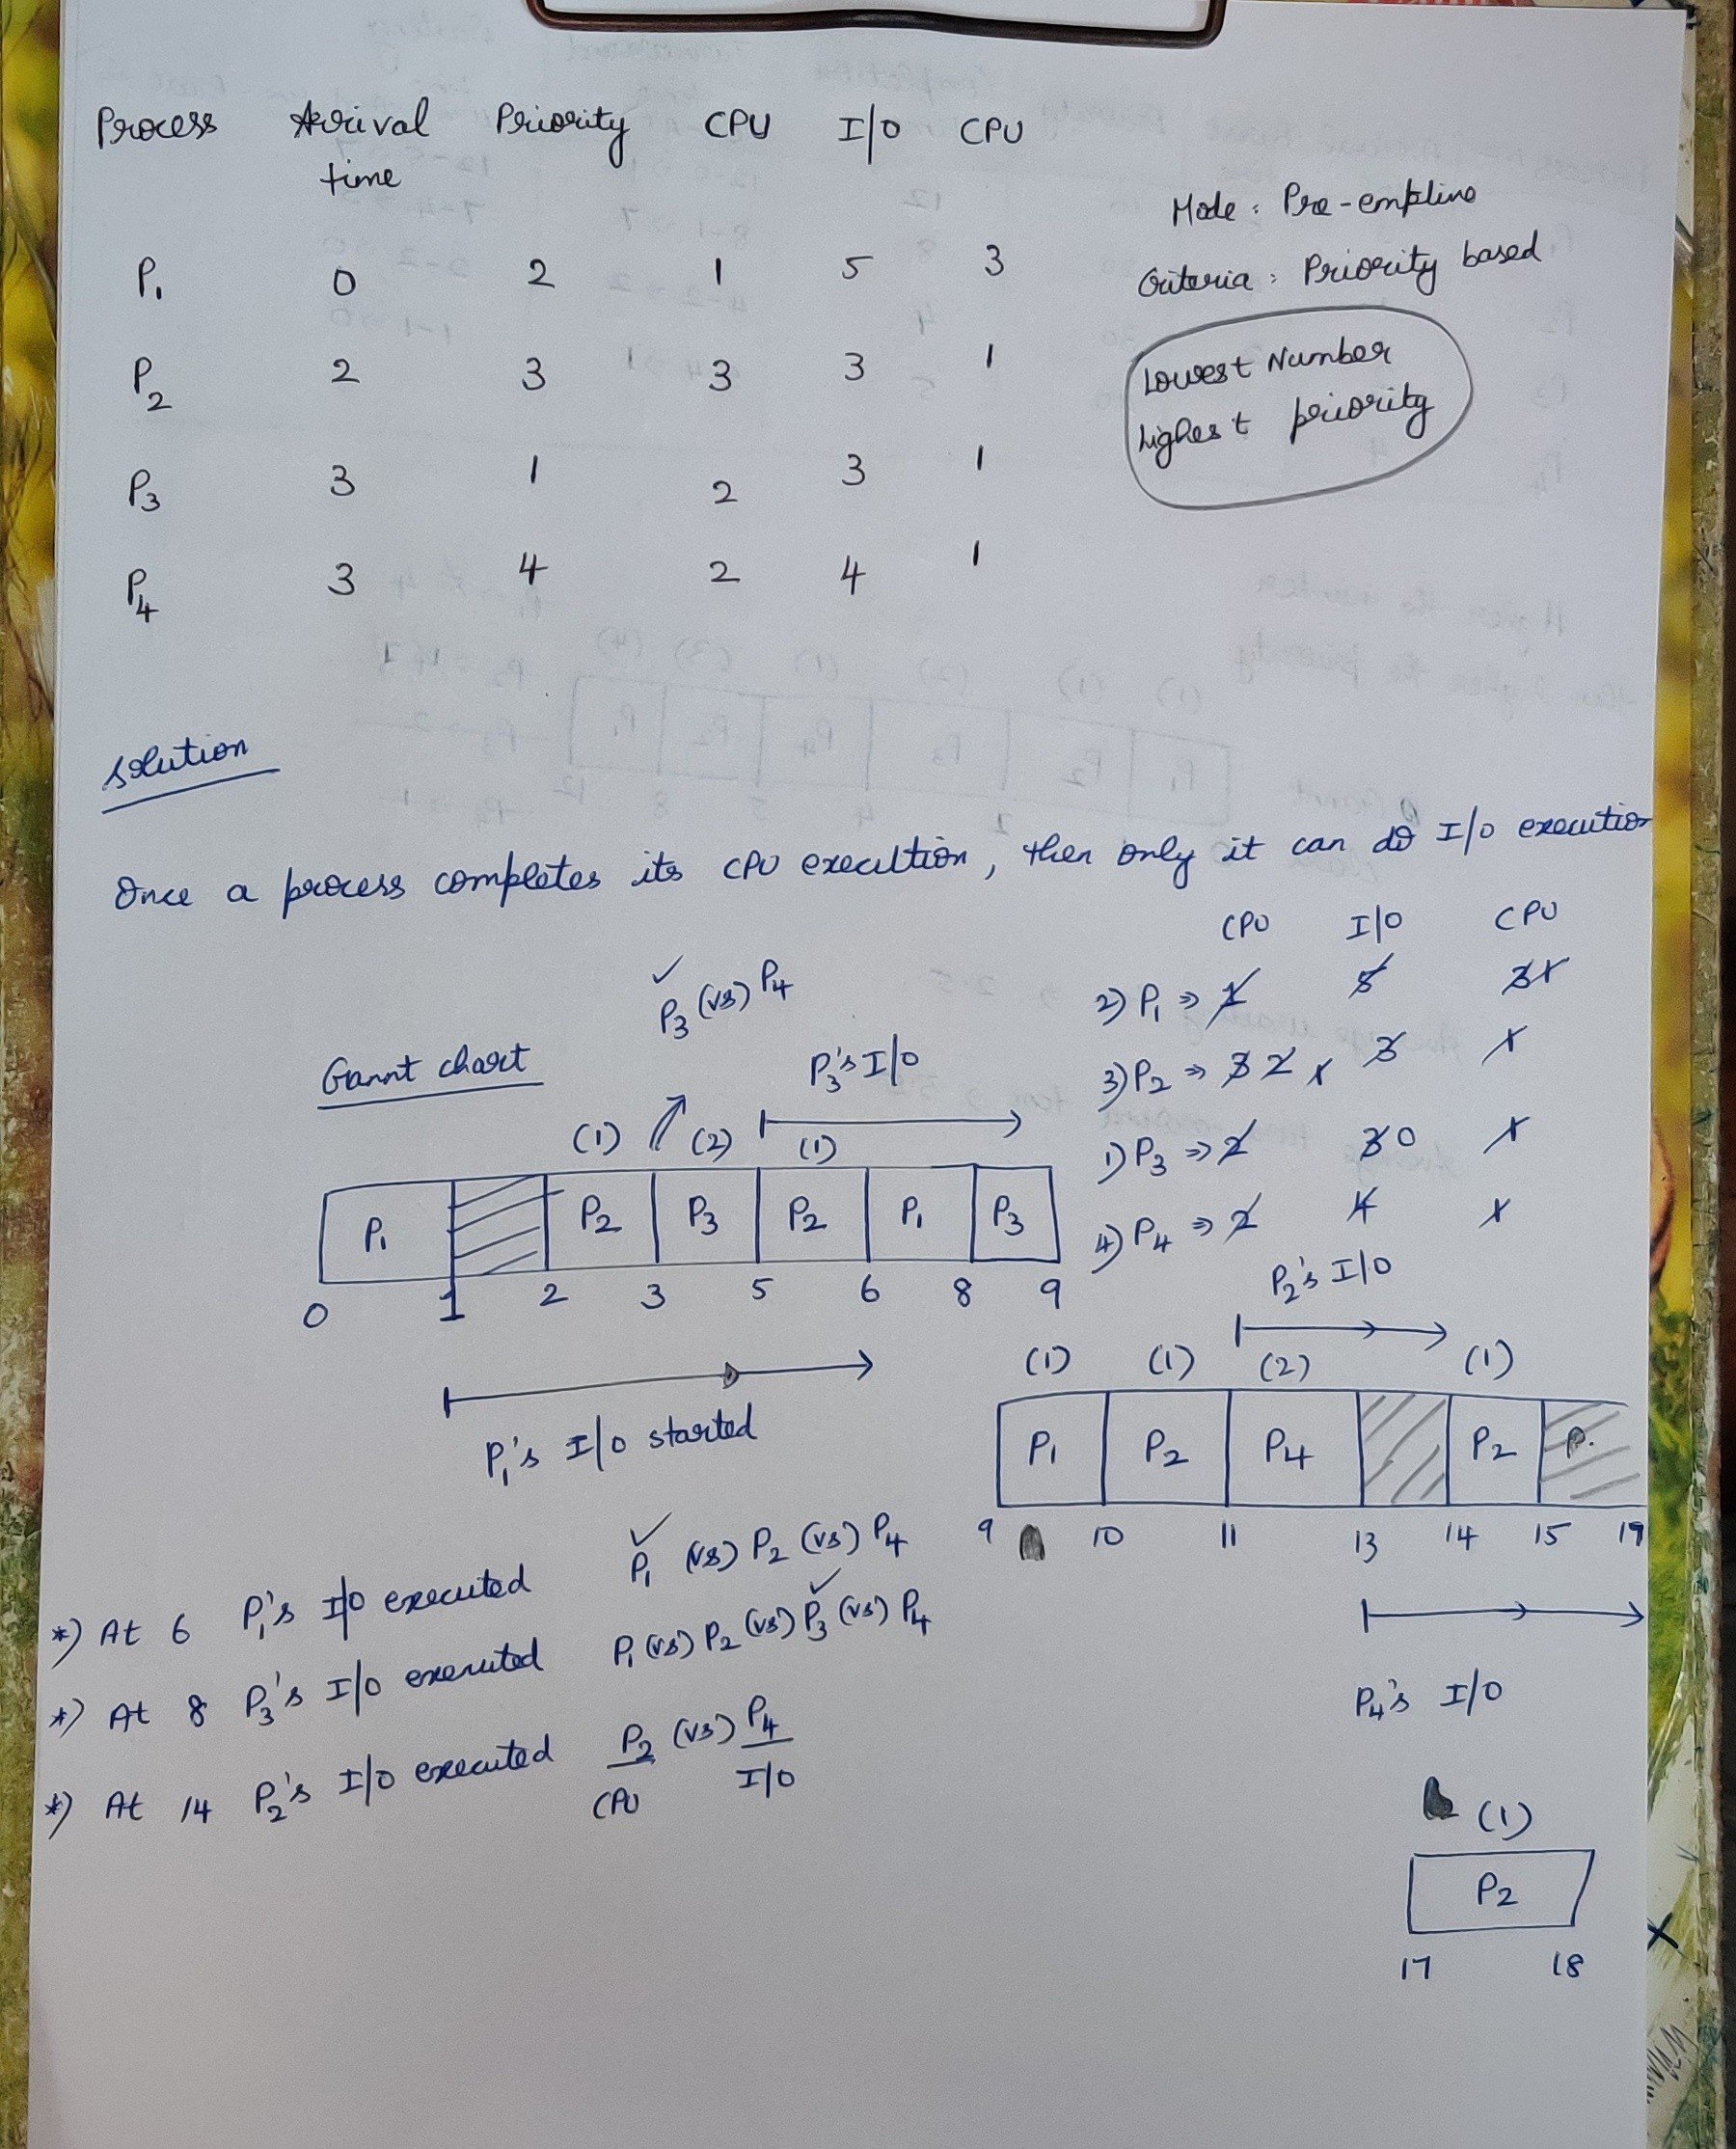 Process Arrival time Priority CPU I/O CPU
P1 0 2 1 5 3
P2 2 3 3 3 1
P3 3 1 2 3 1
P4 3 4 2 4 1
Mode: Pre-emptive
Criteria: Priority based
Lowest Number
highest priority
Solution
Once a process completes its CPU execution, then only it can do I/O execution
CPU I/O CPU
2) P1 => 1 5 3 1
3) P2 => 3 2 1 3 1
1) P3 => 2 3 0 1
4) P4 => 2 4 1
P3 (vs) P4
Gannt chart
P3's I/O
(1) (2) (1)
P1 P2 P3 P2 P1 P3
0 1 2 3 5 6 8 9
P1's I/O started
P2's I/O
(1) (1) (2) (1)
P1 P2 P4 P2 P
9 10 11 13 14 15 19
P4's I/O
*) At 6 P1's I/O executed P1 (vs) P2 (vs) P4
*) At 8 P3's I/O executed P1 (vs) P2 (vs) P3 (vs) P4
*) At 14 P2's I/O executed P2 (vs) P4
CPU I/O
(1)
P2
17 18